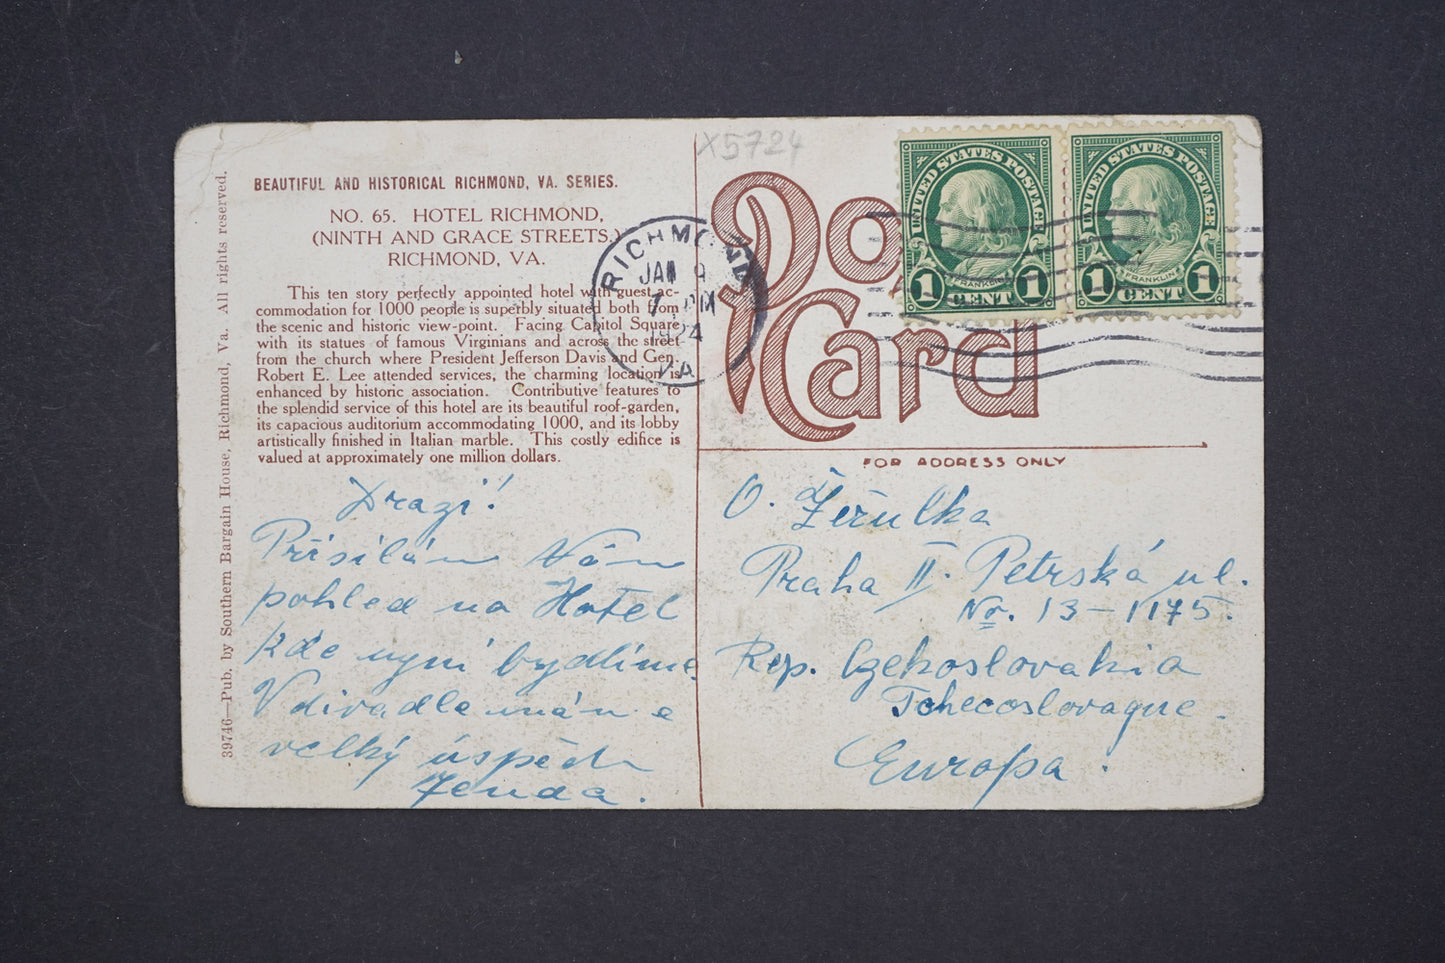 X5724
39746—Pub. by Southern Bargain House, Richmond, Va. All rights reserved.
BEAUTIFUL AND HISTORICAL RICHMOND, VA. SERIES.
NO. 65. HOTEL RICHMOND,
(NINTH AND GRACE STREETS.)
RICHMOND, VA.
This ten story perfectly appointed hotel with guest ac-
commodation for 1000 people is superbly situated both from
the scenic and historic view-point. Facing Capitol Square
with its statues of famous Virginians and across the street
from the church where President Jefferson Davis and Gen.
Robert E. Lee attended services, the charming location is
enhanced by historic association. Contributive features to
the splendid service of this hotel are its beautiful roof-garden,
its capacious auditorium accommodating 1000, and its lobby
artistically finished in Italian marble. This costly edifice is
valued at approximately one million dollars.
Drazí!
Přísílám Vám
pohled na Hotel
kde nyní bydlíme.
V divadle máme
velký úspěch
Jenda.
RICHMOND
JAN 9
7 PM
1924
VA.
Post Card
UNITED STATES POSTAGE
FRANKLIN
1 CENT 1
UNITED STATES POSTAGE
FRANKLIN
1 CENT 1
FOR ADDRESS ONLY
O. Žerulka
Praha II. Petrská ul.
No. 13-1175.
Rep. Czekoslovakia
Tchecoslovaque.
Europa.